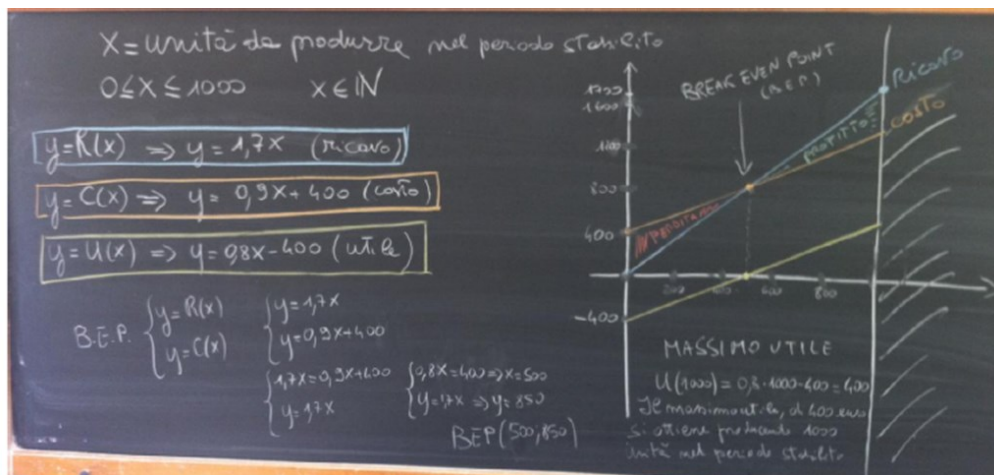 X = unità da produrre nel periodo stabilito
0≤X≤1000 X∈ℕ
y=R(x) ⇒ y = 1,7x (ricavo)
y=C(x) ⇒ y = 0,9x+400 (costo)
y=U(x) ⇒ y=0,8x-400 (utile)
B.E.P. {y=R(x) y=C(x)
{y=1,7x y=0,9x+400
{1,7x=0,9x+400 y=1,7x
{0,8x=400⇒x=500 y=1,7x ⇒ y=850
BEP(500;850)
BREAK EVEN POINT
(B.E.P.)
Ricavo
COSTO
PROFITTO
IN PERDITA
1700
1600
800
400
-400
200
400
600
800
MASSIMO UTILE
U(1000)=0,8·1000-400=400
Il massimo utile, di 400 euro
si ottiene producendo 1000
unità nel periodo stabilito